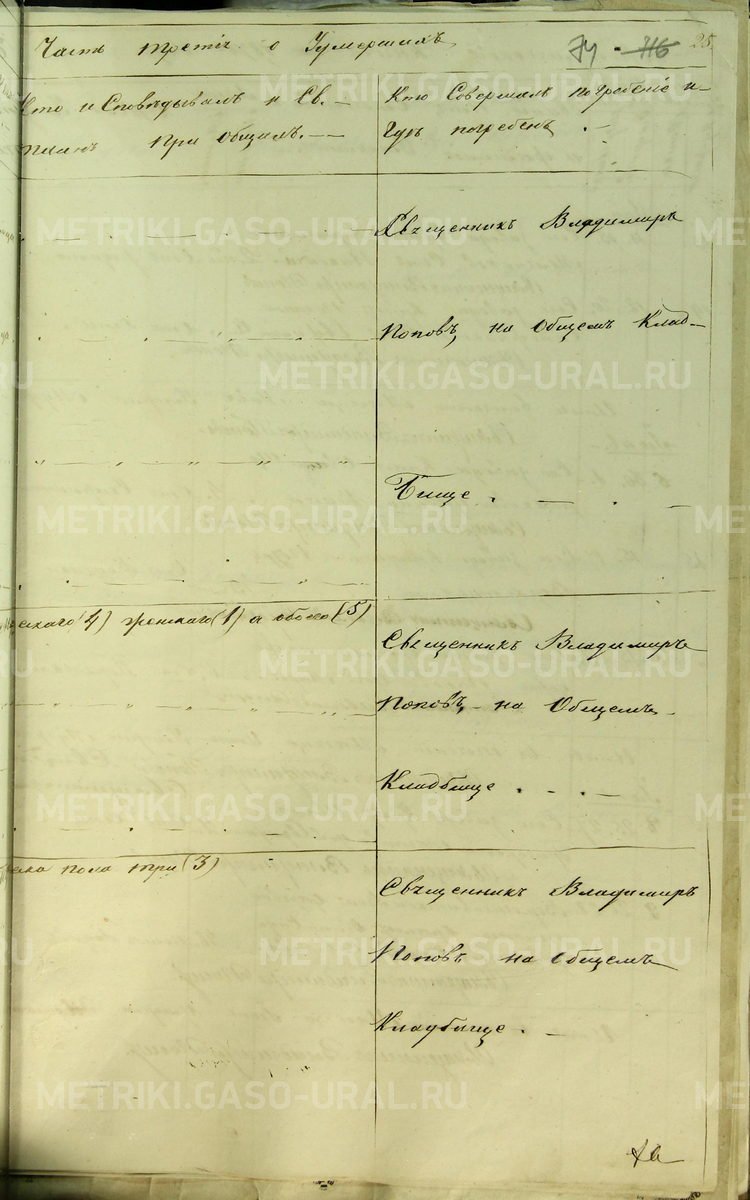 Часть третія о Умершихъ
74 116 25
Кто исповѣдывалъ и Св.
при общимъ.
Кто Совершалъ погребеніе и
гдѣ погребенъ.
Священникъ Владимиръ
Поповъ, на Общемъ Клад-
бище.
скаго (4) женскаго (1) а обоего (5)
Священникъ Владимиръ
Поповъ, на Общемъ
Кладбище
ска пола три (3)
Священникъ Владимиръ
Поповъ на Общемъ
Кладбище.
METRIKI.GASO-URAL.RU